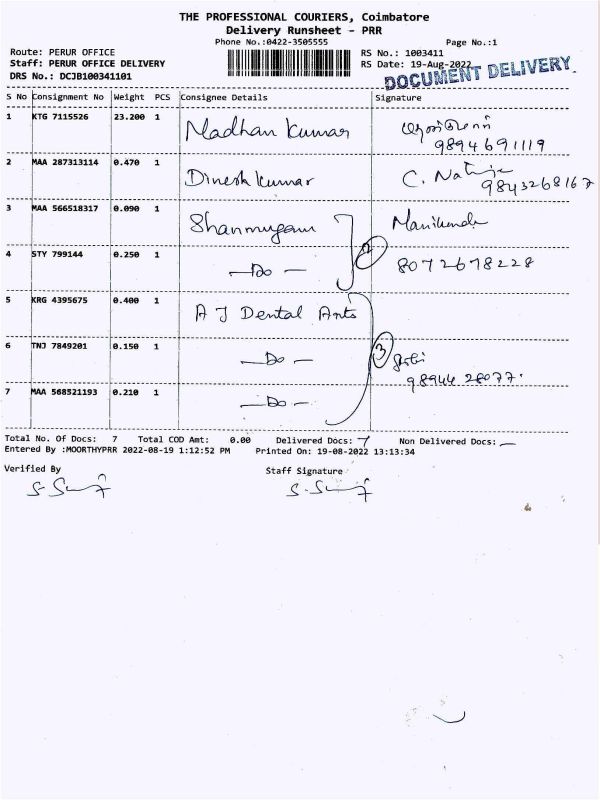 THE PROFESSIONAL COURIERS, Coimbatore
Delivery Runsheet - PRR
Phone No.:0422-3505555
Page No.:1
Route: PERUR OFFICE
RS No.: 1003411
Staff: PERUR OFFICE DELIVERY
RS Date: 19-Aug-2022
DRS No.: DCJB100341101
DOCUMENT DELIVERY.
S No Consignment No Weight PCS Consignee Details Signature
1 KTG 7115526 23.200 1 Madhan Kumar
9894691119
2 MAA 287313114 0.470 1 Dinesh Kumar C.
9843268167
3 MAA 566518317 0.090 1 Shanmugam
4 STY 799144 0.250 1 —Do— 2 8072678228
5 KRG 4395675 0.400 1 A J Dental Arts
6 TNJ 7849201 0.150 1 —Do— 3
98944 28077.
7 MAA 568521193 0.210 1 —Do—
Total No. Of Docs: 7 Total COD Amt: 0.00 Delivered Docs: 7 Non Delivered Docs: —
Entered By :MOORTHYPRR 2022-08-19 1:12:52 PM Printed On: 19-08-2022 13:13:34
Verified By Staff Signature